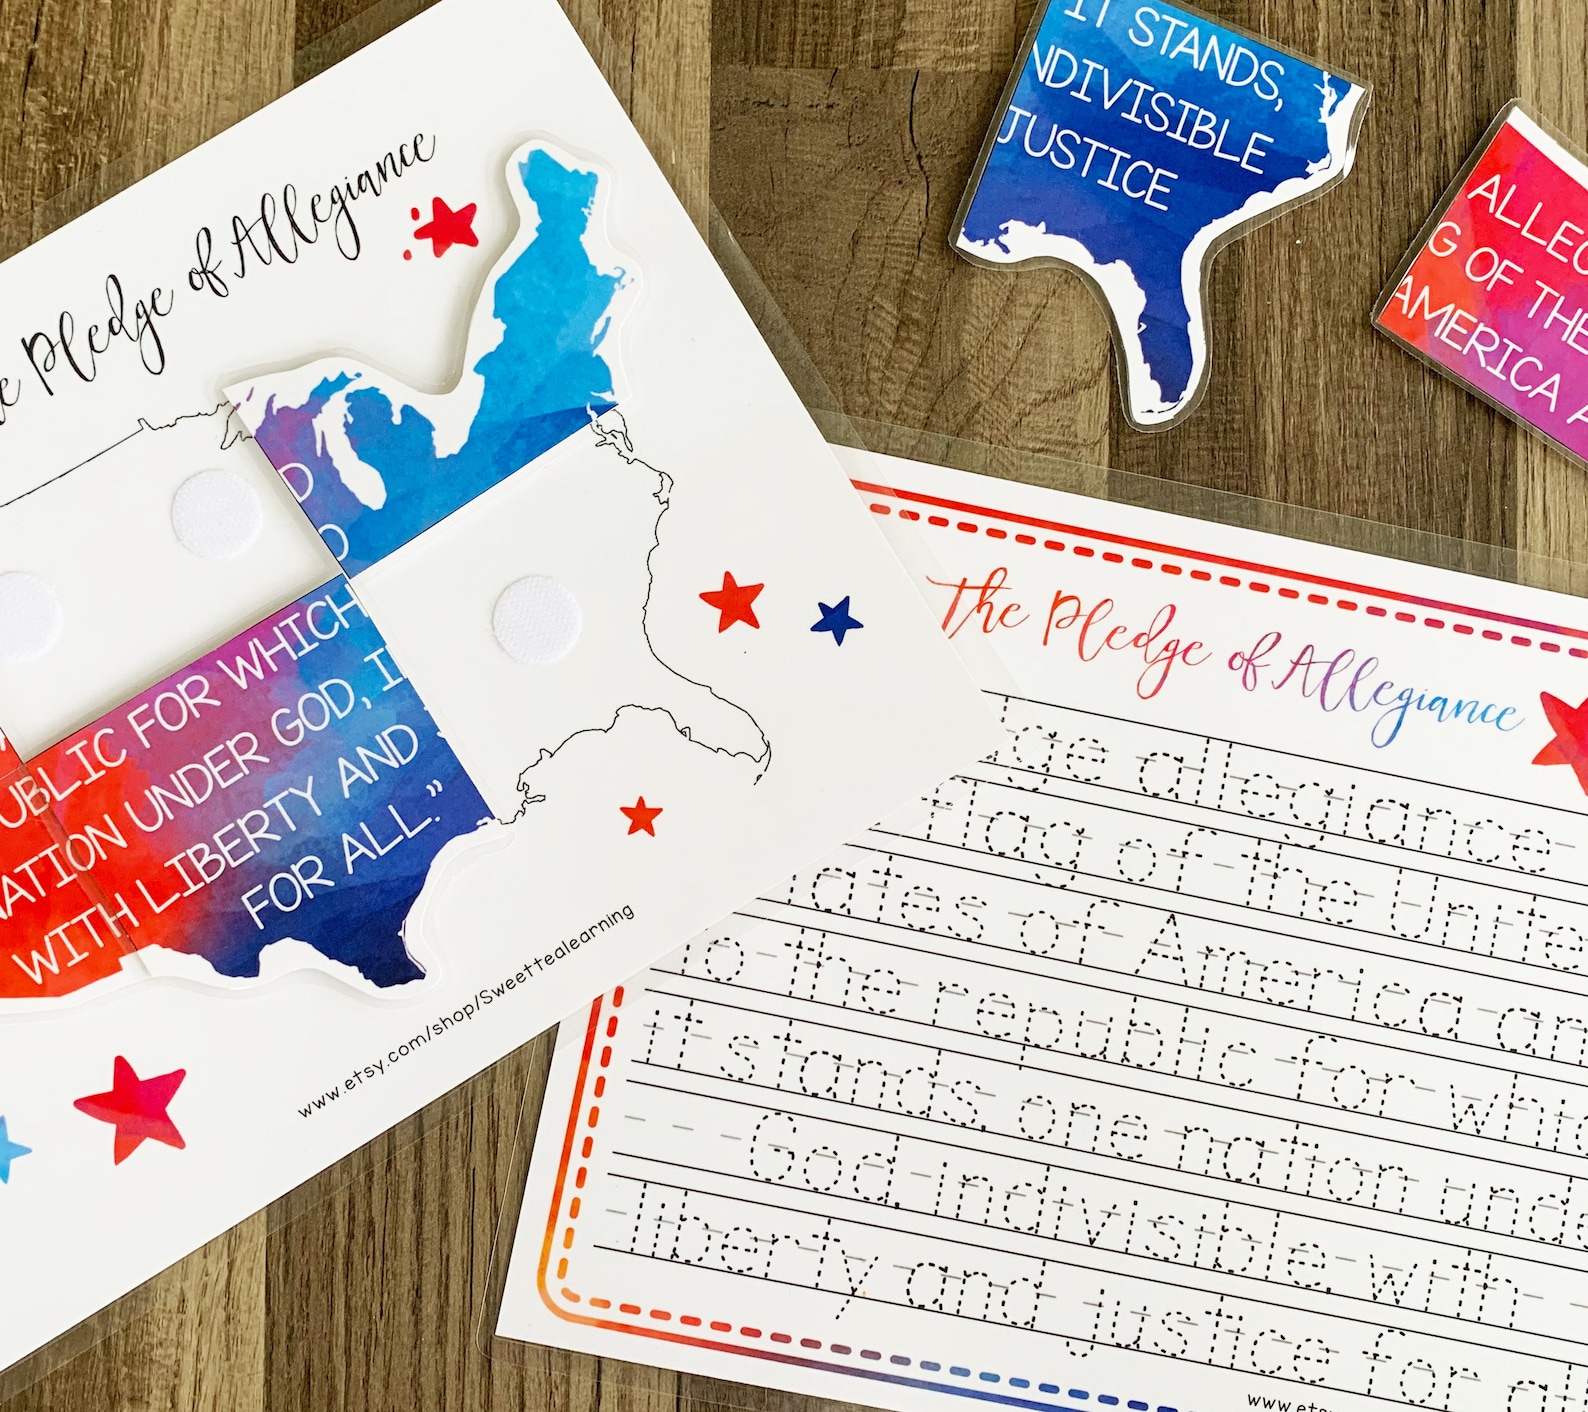 Pledge of Allegiance
UBLIC FOR WHICH
NATION UNDER GOD, I
WITH LIBERTY AND J
FOR ALL.”
www.etsy.com/shop/Sweettealearning
IT STANDS,
NDIVISIBLE
JUSTICE
ALLEG
G OF THE
AMERICA A
The Pledge of Allegiance
ge allegiance
flag of the Unite
tates of America an
to the republic for whic
it stands, one nation unde
God, indivisible, with
liberty and justice for al
www.ets